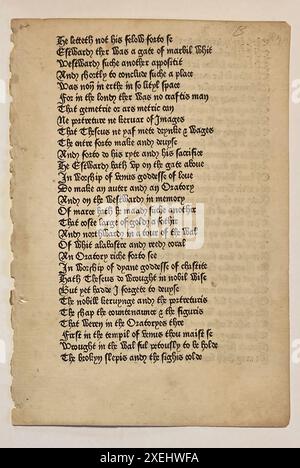 He letteth not his felow forto se
Estwardy ther was a gate of marbil whit
Westwardy suche another appositit
And shortly to conclude suche a place
Was non in erthe in so lityl space
For in the londy ther was no craftis man
That gemetrie or ars metric can
Ne portreture ne keruar of Images
That Theseus ne yaf mete drynke & wages
The outre forto make and deuyse
And forto do his ryte and his sacrifice
He Estwardy hath vp on the gate aboue
In Worship of venus goddesse of loue
Do make an auter and an Oratory
And on the Westwardy in memory
Of marce hath he maady suche another
That coste large of gold a fothir
And northwardy in a tour of the wal
Of whit alabastre and reedy coral
An Oratory riche forto see
In Worship of dyane goddesse of chastite
Hath Theseus do wrought in nobil wise
But yet hadde I forgete to deuyse
The nobill keruynge and the portreturis
The shap the countenaunce & the figuris
That weren in the Oratoryes thre
First in the templ of venus thou maist se
Wrought in the wal ful petously to be holde
The brokyn slepis and the sighis colde
alamy
Image ID: 2XEHWFA
www.alamy.com